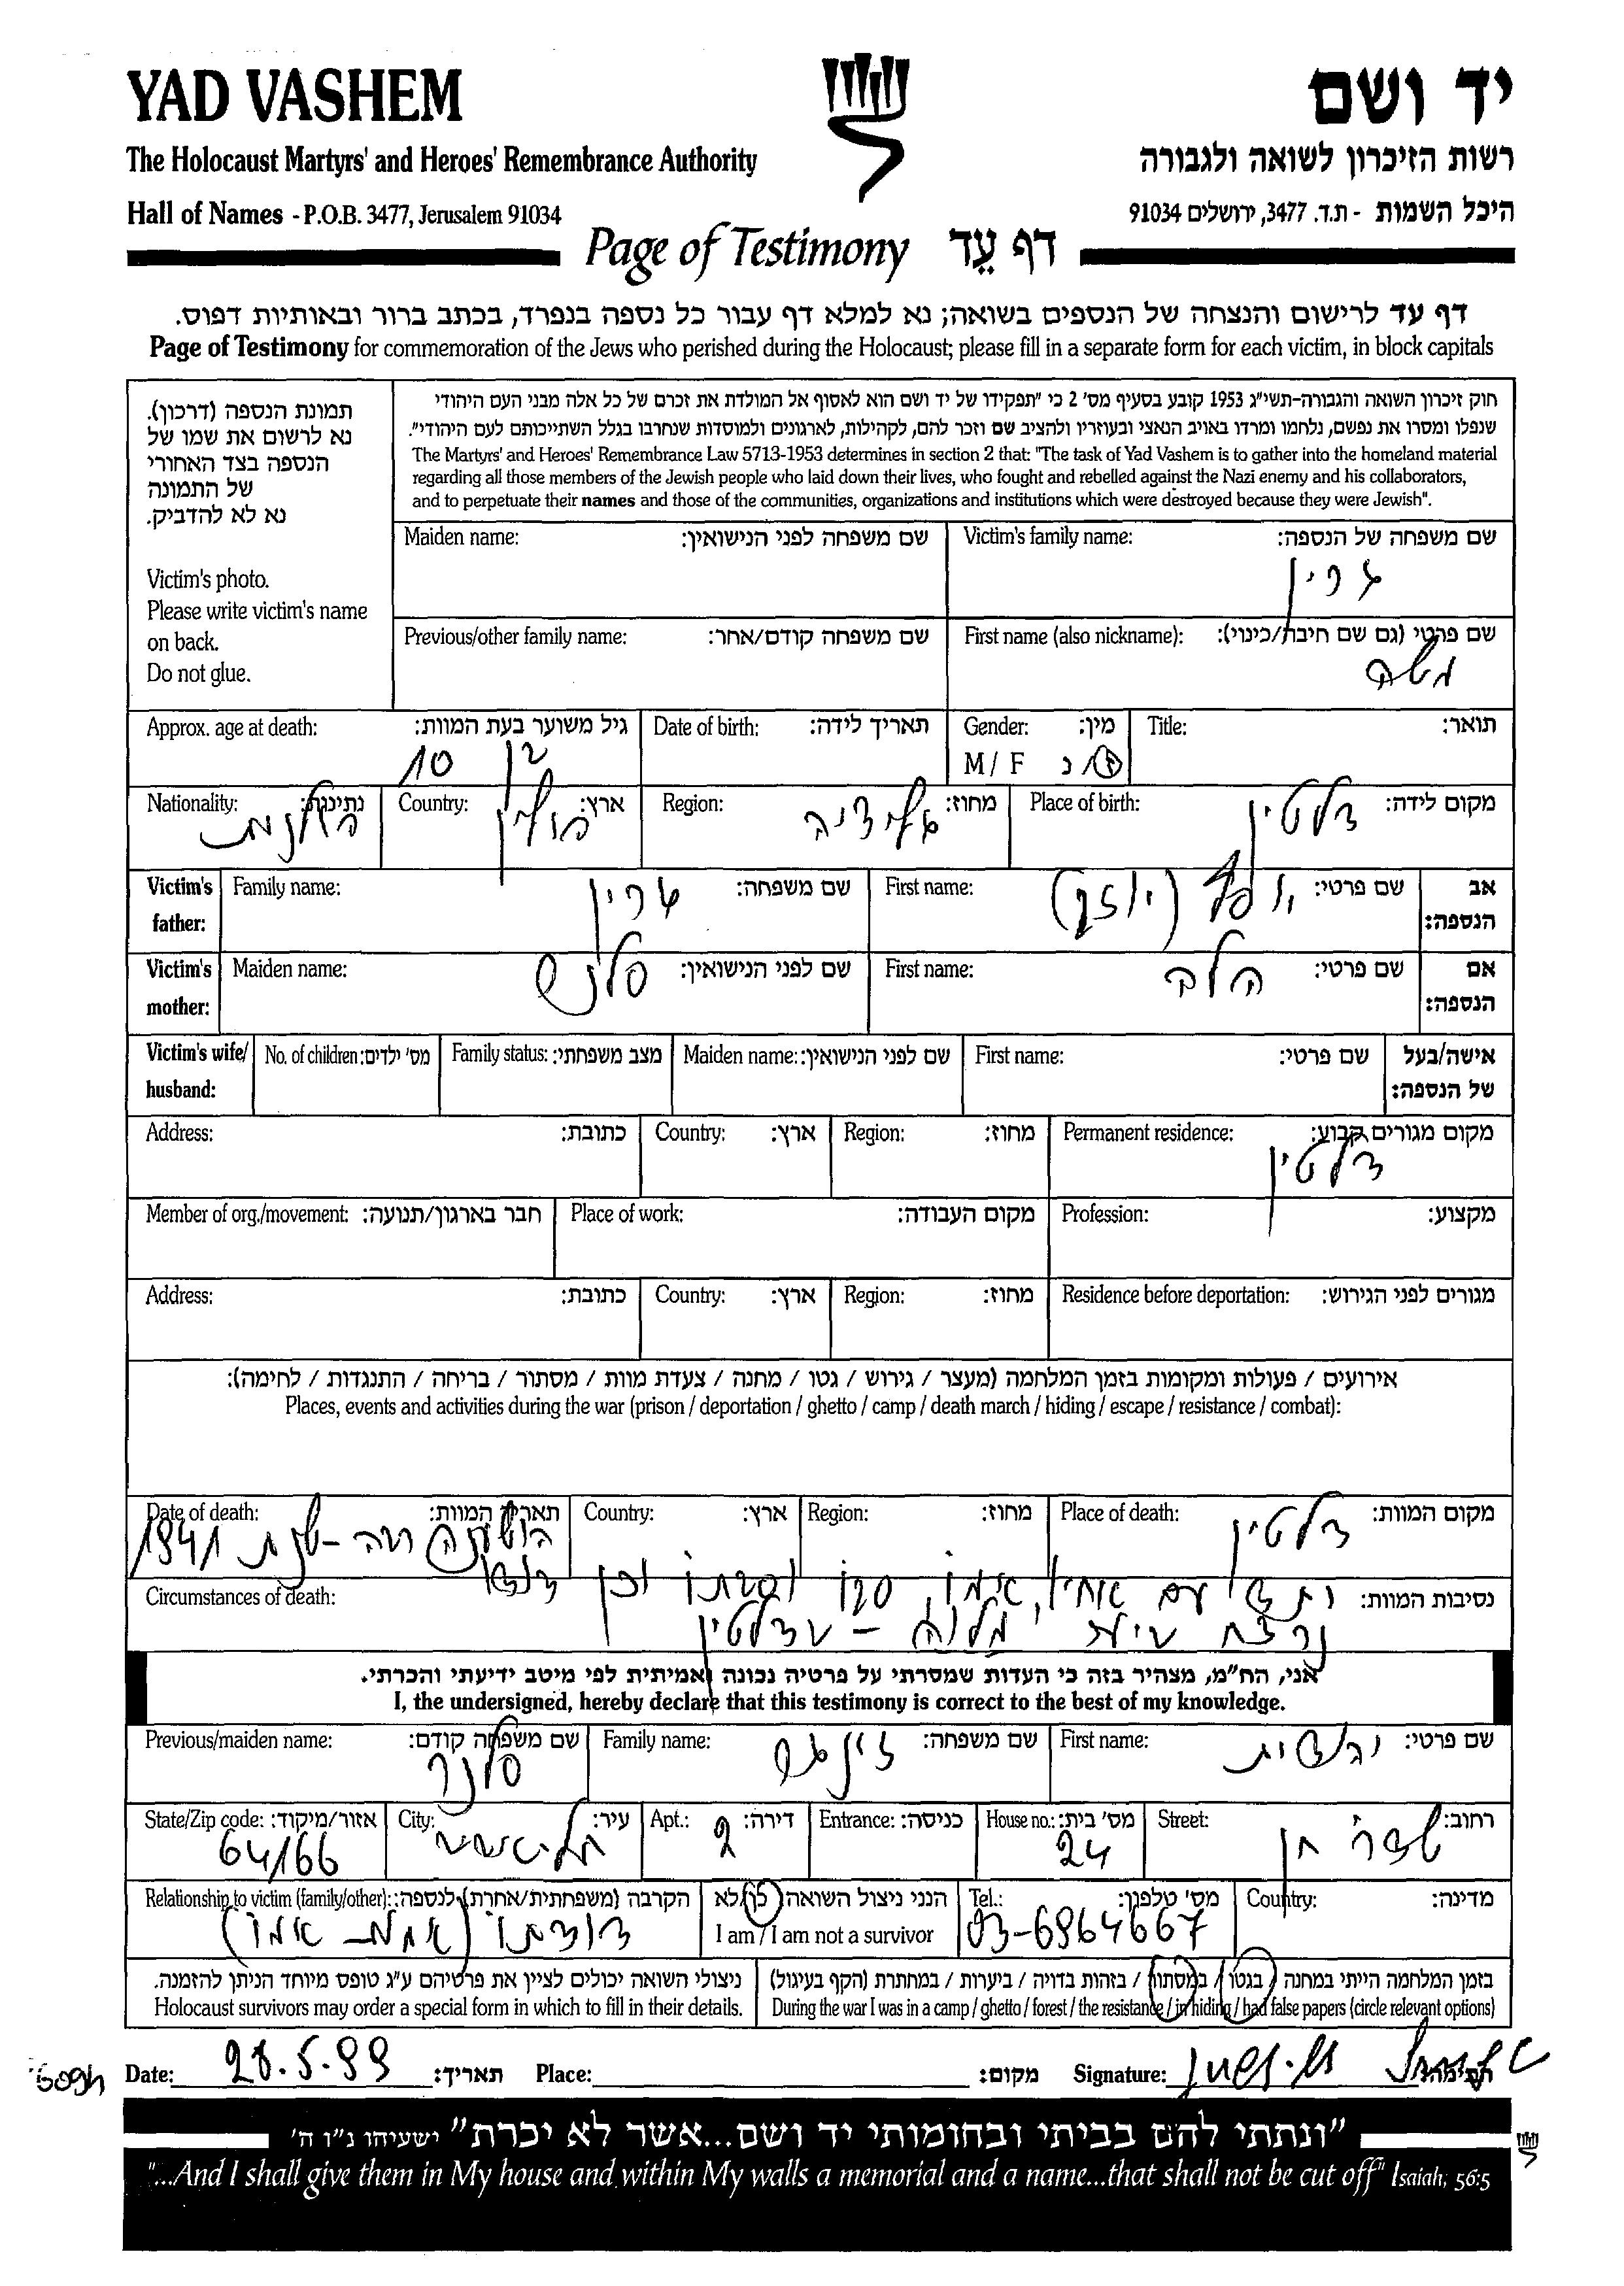 YAD VASHEM
יד ושם
The Holocaust Martyrs' and Heroes' Remembrance Authority
רשות הזיכרון לשואה ולגבורה
Hall of Names - P.O.B. 3477, Jerusalem 91034
היכל השמות - ת.ד. 3477, ירושלים 91034
Page of Testimony דף עֵד
דף עד לרישום והנצחה של הנספים בשואה; נא למלא דף עבור כל נספה בנפרד, בכתב ברור ובאותיות דפוס.
Page of Testimony for commemoration of the Jews who perished during the Holocaust; please fill in a separate form for each victim, in block capitals
תמונת הנספה (דרכון).
נא לרשום את שמו של
הנספה בצד האחורי
של התמונה
נא לא להדביק.
Victim's photo.
Please write victim's name
on back.
Do not glue.
חוק זיכרון השואה והגבורה-תשי"ג 1953 קובע בסעיף מס' 2 כי "תפקידו של יד ושם הוא לאסוף אל המולדת את זכרם של כל אלה מבני העם היהודי
שנפלו ומסרו את נפשם, נלחמו ומרדו באויב הנאצי ובעוזריו ולהציב שם וזכר להם, לקהילות, לארגונים ולמוסדות שנחרבו בגלל השתייכותם לעם היהודי".
The Martyrs' and Heroes' Remembrance Law 5713-1953 determines in section 2 that: "The task of Yad Vashem is to gather into the homeland material
regarding all those members of the Jewish people who laid down their lives, who fought and rebelled against the Nazi enemy and his collaborators,
and to perpetuate their names and those of the communities, organizations and institutions which were destroyed because they were Jewish".
Victim's family name: שם משפחה של הנספה:
Maiden name: שם משפחה לפני הנישואין:
First name (also nickname): שם פרטי (גם שם חיבה/כינוי):
משה
Previous/other family name: שם משפחה קודם/אחר:
Title: תואר:
Gender: מין:
M / F ז/נ
Date of birth: תאריך לידה:
Approx. age at death: גיל משוער בעת המוות:
בן 10
Place of birth: מקום לידה:
דלטין
Region: מחוז:
גליציה
Country: ארץ:
פולין
Nationality: נתינות:
פולנית
Victim's father: אב הנספה:
First name: שם פרטי:
Family name: שם משפחה:
Victim's mother: אם הנספה:
First name: שם פרטי:
Maiden name: שם לפני הנישואין:
Victim's wife/husband: אישה/בעל של הנספה:
First name: שם פרטי:
Maiden name: שם לפני הנישואין:
Family status: מצב משפחתי:
No. of children: מס' ילדים:
Permanent residence: מקום מגורים קבוע:
דלטין
Region: מחוז:
Country: ארץ:
Address: כתובת:
Profession: מקצוע:
Place of work: מקום העבודה:
Member of org./movement: חבר בארגון/תנועה:
Residence before deportation: מגורים לפני הגירוש:
Region: מחוז:
Country: ארץ:
Address: כתובת:
אירועים / פעולות ומקומות בזמן המלחמה (מעצר / גירוש / גטו / מחנה / צעדת מוות / מסתור / בריחה / התנגדות / לחימה):
Places, events and activities during the war (prison / deportation / ghetto / camp / death march / hiding / escape / resistance / combat):
Place of death: מקום המוות:
דלטין
Region: מחוז:
Country: ארץ:
Date of death: תאריך המוות:
הושענה רבה - שנת 1941
Circumstances of death: נסיבות המוות:
יחד עם אחיו, אימו, סבו וסבתו וכן
אני, הח"מ, מצהיר בזה כי העדות שמסרתי על פרטיה נכונה ואמיתית לפי מיטב ידיעתי והכרתי.
I, the undersigned, hereby declare that this testimony is correct to the best of my knowledge.
First name: שם פרטי:
יהודית
Family name: שם משפחה:
Previous/maiden name: שם משפחה קודם:
Street: רחוב:
House no.: מס' בית:
24
Entrance: כניסה:
Apt.: דירה:
2
City: עיר:
תל אביב
State/Zip code: אזור/מיקוד:
64166
Country: מדינה:
Tel.: מס' טלפון:
03-6964667
הנני ניצול השואה כן/לא
I am / I am not a survivor
Relationship to victim (family/other): הקרבה (משפחתית/אחרת) לנספה:
דודתו (אחות אמו)
בזמן המלחמה הייתי במחנה / בגטו / במסתור / בזהות בדויה / ביערות / במחתרת (הקף בעיגול)
During the war I was in a camp / ghetto / forest / the resistance / in hiding / had false papers (circle relevant options)
ניצולי השואה יכולים לציין את פרטיהם ע"ג טופס מיוחד הניתן להזמנה.
Holocaust survivors may order a special form in which to fill in their details.
Date: 28.5.99 תאריך: Place: מקום: Signature: חתימה:
"ונתתי להם בביתי ובחומותי יד ושם...אשר לא יכרת" ישעיהו נ"ו ה'
"...And I shall give them in My house and within My walls a memorial and a name...that shall not be cut off" Isaiah, 56:5